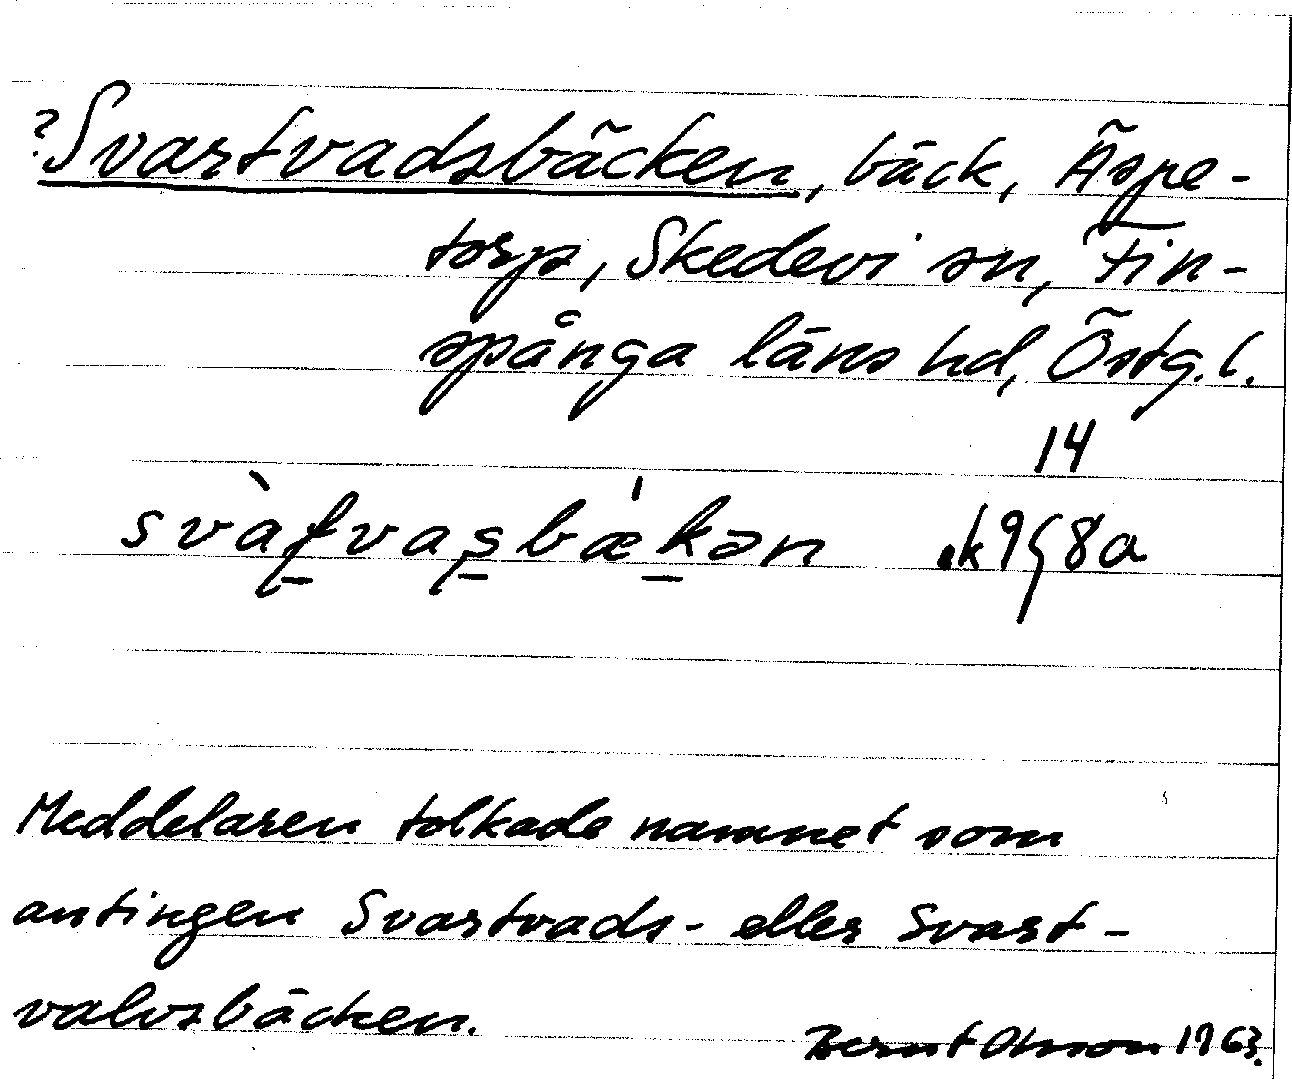 ?Svartvadsbäcken, bäck, Äspe-
torp, Skedevi sn, Fin-
spånga läns hd, Östg. l.
14
svàʈvaʂbækən ek 9G8a
Meddelaren tolkade namnet som
antingen Svartvads- eller Svart-
valvsbäcken.
Bernt Olsson 1963.